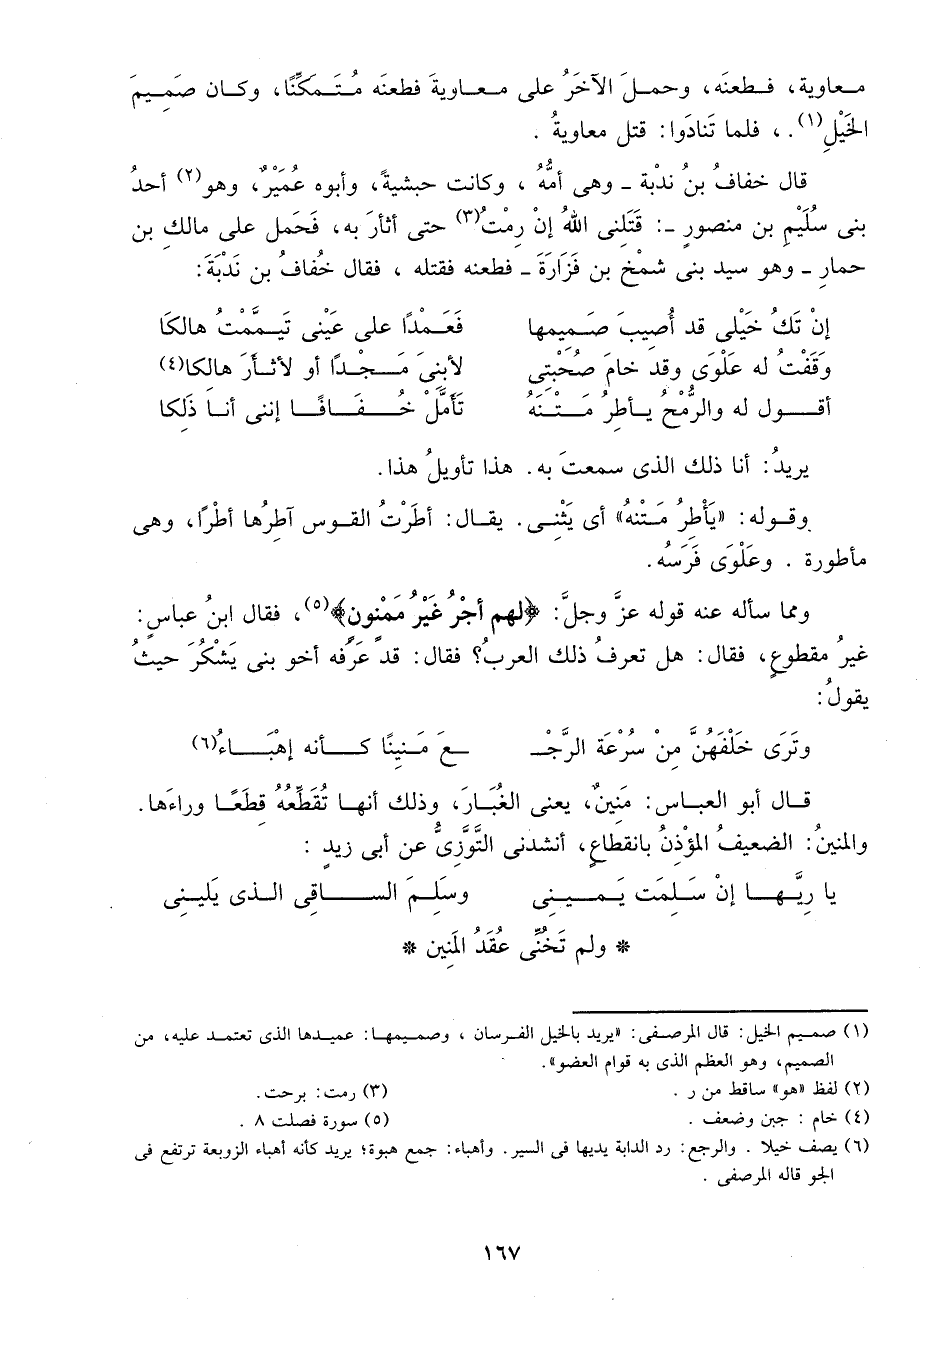 معاوية، فطعنَه، وحملَ الآخَرُ على معاويةَ فطعنَه مُتَمكِّنًا، وكان صَمِيمَ
الخَيْلِ(١). ، فلما تَنادَوا: قتل معاويةُ .
قال خفافُ بنُ نُدبة ـ وهى أمُّهُ ، وكانت حبشيةً، وأبوه عُمَيرٌ، وهو(٢) أحدُ
بنى سُلَيْمِ بن منصورٍ ـ: قَتَلَنى اللهُ إنْ رِمْتُ(٣) حتى أثأرَ به، فَحَمل على مالك بن
حمارٍ ـ وهو سيد بنى شَمْخِ بن فَزَارَةَ ـ فطعنه فقتله ، فقال خُفافُ بن نَدْبَةَ:
إنْ تَكُ خَيْلى قد أُصيبَ صَميمها فَعَمْدًا على عَيْنى تَيَمَّمْتُ مالكَا
وَقَفْتُ له عَلْوَى وقد خامَ صُحْبَتِى لأبنىَ مَجْدًا أو لأثأرَ هالكا(٤)
أقول له والرُّمْحُ يأطِرُ مَتْنَهُ تَأمَّلْ خُفَافًا إننى أنا ذَلِكا
يريدُ: أنا ذلك الذى سمعت به. هذا تأويلُ هذا.
وقوله: «يَأْطِرُ مَتنه» أى يَثْنى. يقال: أطَرْتُ القوس آطِرُها أطْرًا، وهى
مأطورة . وعَلْوَى فَرَسُه.
ومما سأله عنه قوله عزَّ وجلَّ: ﴿لهم أجْرٌ غَيْرُ مَمْنُونٍ﴾(٥)، فقال ابنُ عباسٍ:
غيرُ مقطوعٍ، فقال: هل تعرفُ ذلك العرب؟ فقال: قد عَرَفه أخو بنى يَشْكُرَ حيثُ
يقولُ:
وتَرَى خَلْفَهُنَّ مِنْ سُرْعَةِ الرَّجْـ ـعِ مَنِينًا كأنه إهْبَاءُ(٦)
قال أبو العباس: مَنِينٌ، يعنى الغُبَارَ، وذلك أنها تُقَطِّعُهُ قِطَعًا وراءَها.
والمنينُ: الضعيفُ المُؤْذِنُ بانقطاعٍ، أنشدنى التَّوَّزِىُّ عن أبى زيدٍ :
يا رِيَّها إنْ سَلِمَت يَمِينِى وسَلِمَ الساقى الذى يَلِينى
* ولم تَخُنِّى عُقَدُ المَنِين *
(١) صميم الخيل: قال المرصفى: «يريد بالخيل الفرسان ، وصميمها: عميدها الذى تعتمد عليه، من
الصميم، وهو العظم الذى به قوام العضو».
(٢) لفظ «هو» ساقط من ر . (٣) رمت: برحت.
(٤) خام : جبن وضعف . (٥) سورة فصلت ٨ .
(٦) يصف خيلا . والرجع: رد الدابة يديها فى السير. وأهباء: جمع هبوة؛ يريد كأنه أهباء الزوبعة ترتفع فى
الجو قاله المرصفى .
١٦٧